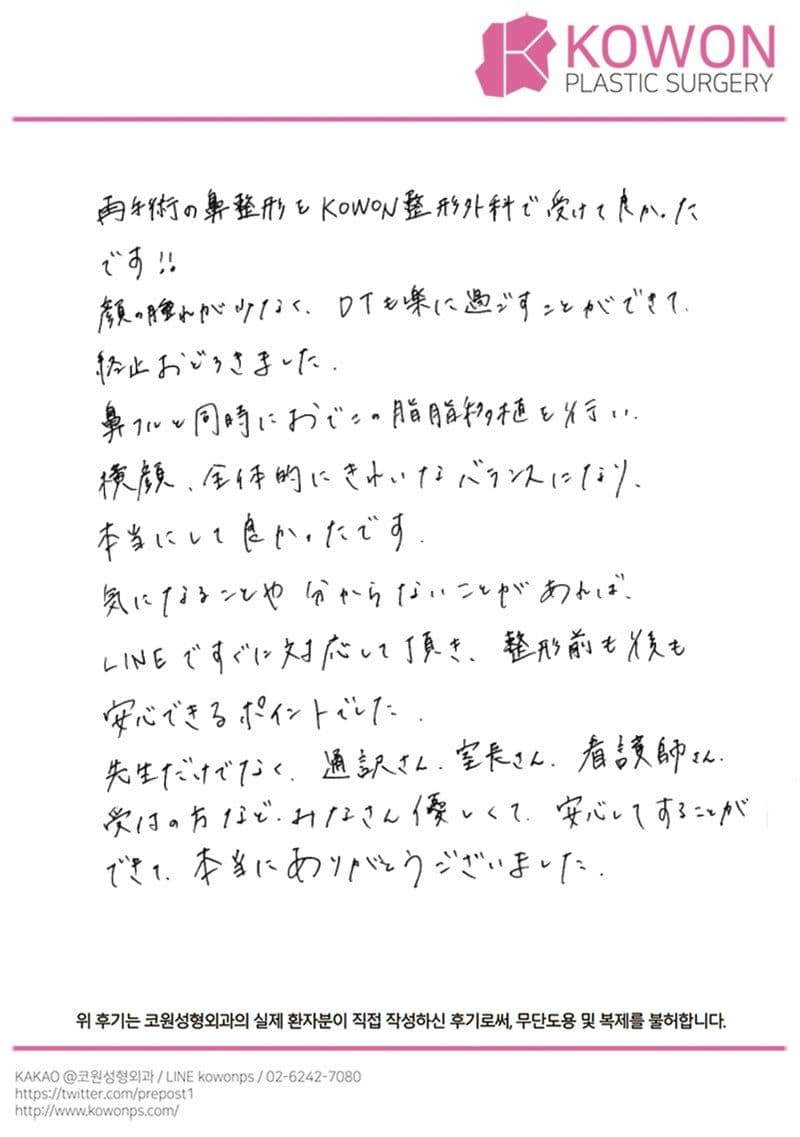 KOWON
PLASTIC SURGERY
再手術の鼻整形をKOWON整形外科で受けて良かった
です!!
顔の腫れが少なく、DTも楽に過ごすことができて、
終止おどろきました.
鼻フルと同時におでこの脂脂移植を行い、
横顔、全体的にきれいなバランスになり、
本当にして良かったです.
気になることや分からないことがあれば、
LINEですぐに対応して頂き、整形前も後も
安心できるポイントでした.
先生だけでなく、通訳さん、室長さん、看護師さん、
受付の方など、みなさん優しくて、安心してすることが
できて、本当にありがとうございました.
위 후기는 코원성형외과의 실제 환자분이 직접 작성하신 후기로써, 무단도용 및 복제를 불허합니다.
KAKAO @코원성형외과 / LINE kowonps / 02-6242-7080
https://twitter.com/prepost1
http://www.kowonps.com/